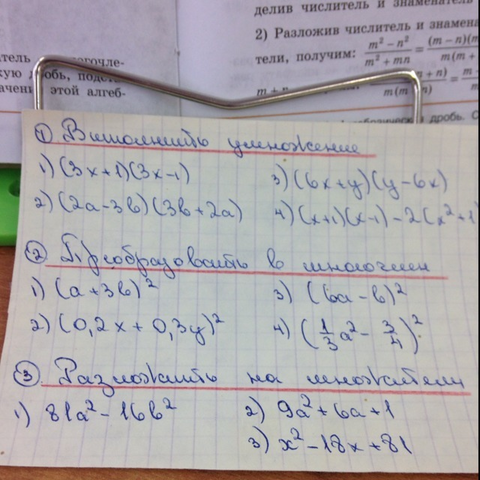 делив числитель и знаменатель
2) Разложив числитель и знамена
тели, получим: m² − n² / m² + mn = (m − n)(m / m(m +
① Выполнить умножение
1) (3x+1)(3x-1)
3) (6x+y)(y-6x)
2) (2a-3b)(3b+2a)
4) (x+1)(x-1)-2(x²+1
② Преобразовать в многочлен
1) (a+3b)²
3) (6a-b)²
2) (0,2x+0,3y)²
4) (1/3a²-3/4)²
③ Разложить на множители
1) 81a²-16b²
2) 9a²+6a+1
3) x²-18x+81